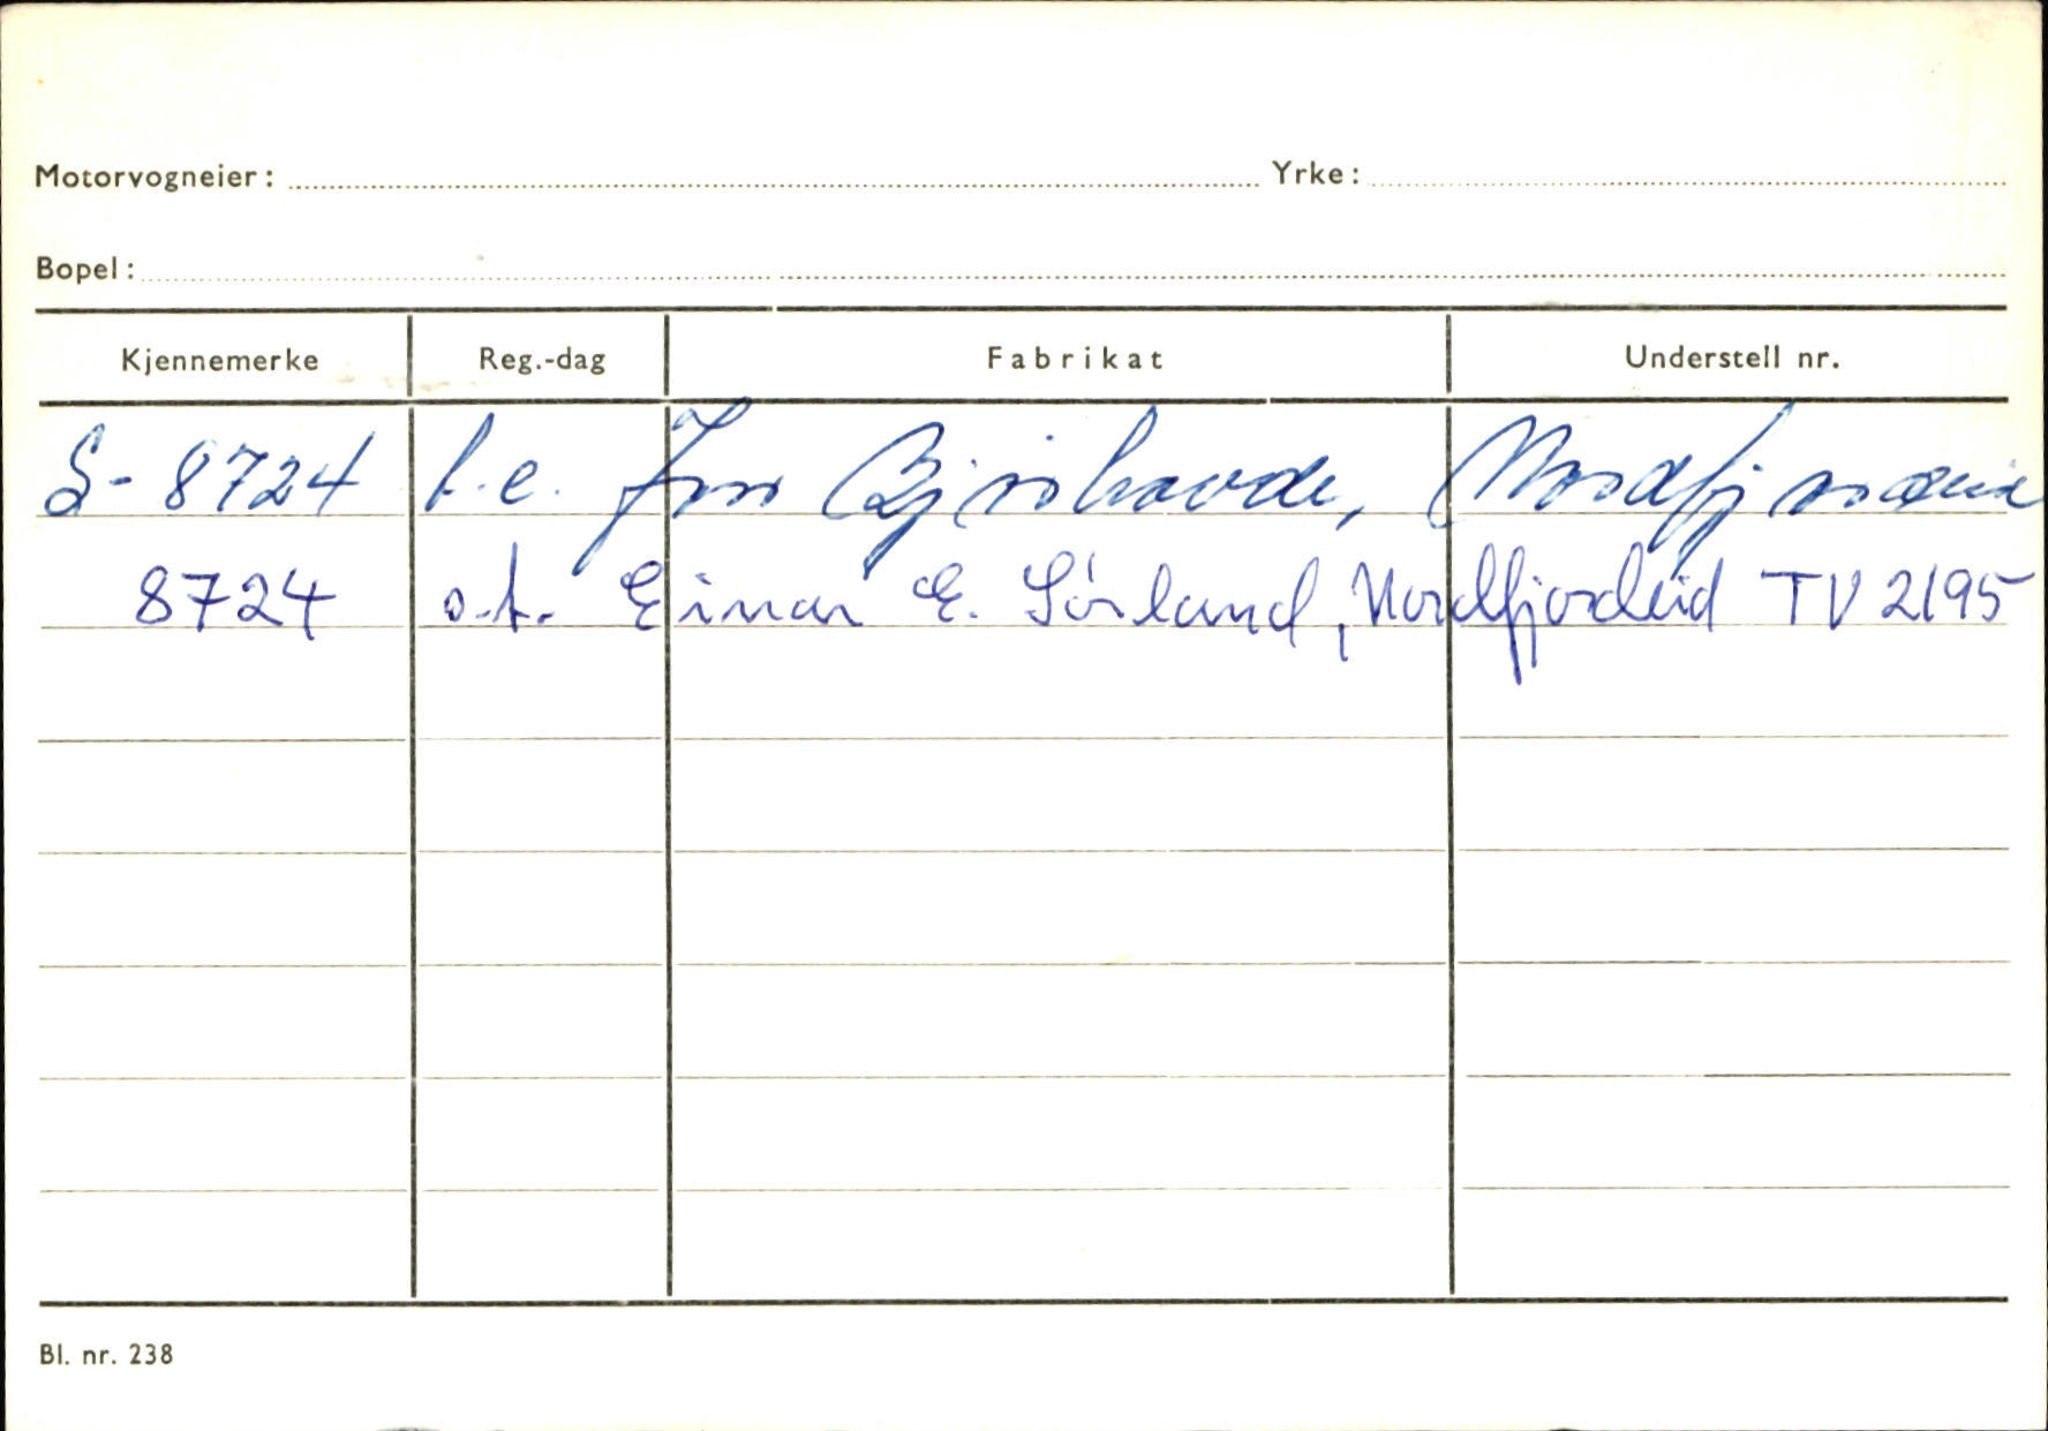 Motorvogneier: Yrke:
Bopel:
Kjennemerke Reg.-dag Fabrikat Understell nr.
S-8724 t.e. Jon Bjørhovde, Nordfjordeid
8724 o.t. Einar E. Sørland, Nordfjordeid TV 2195
Bl. nr. 238